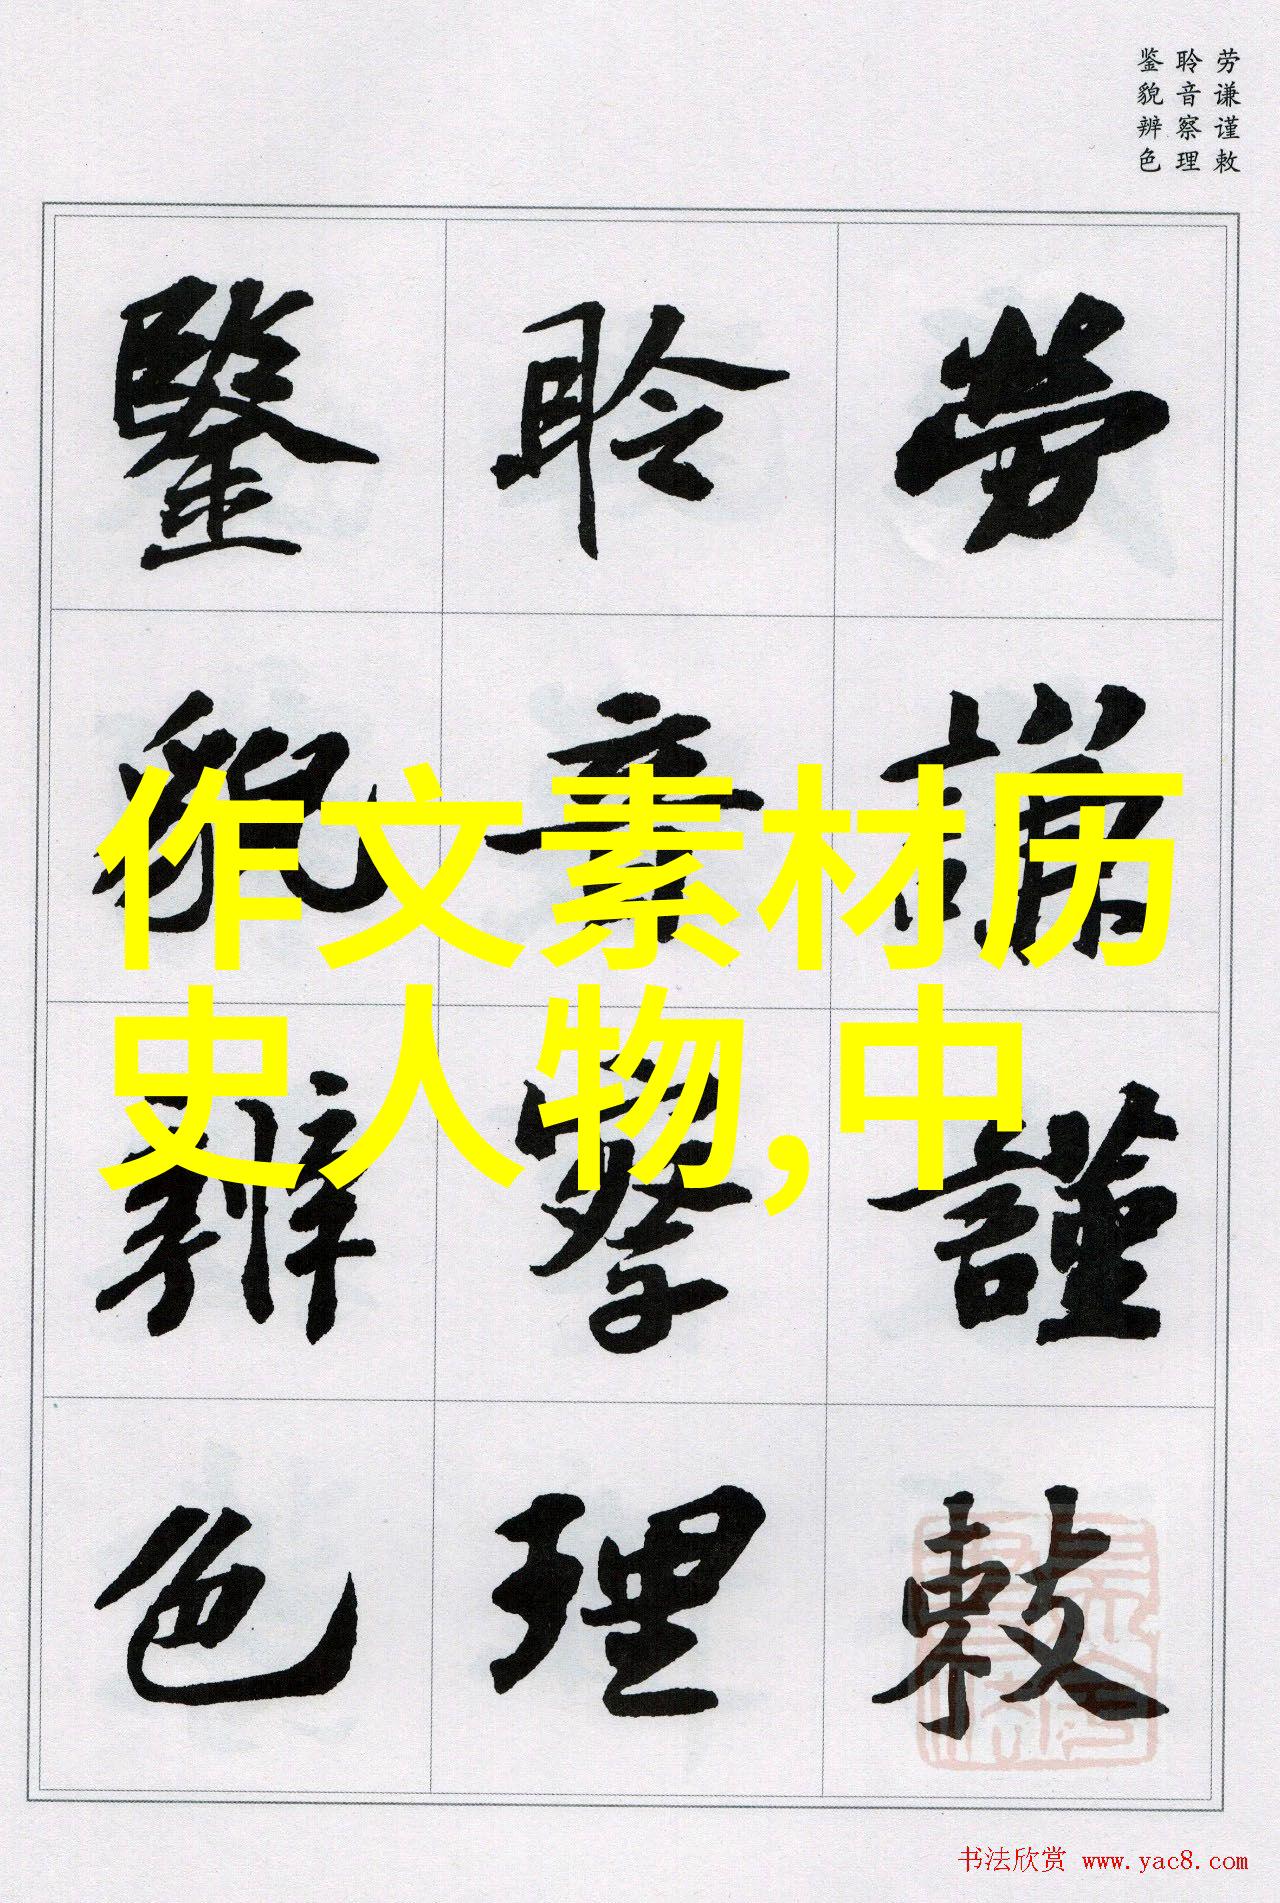 劳谦谨敕
聆音察理
鉴貌辨色
勞謙謹敕
聆音察理
鑒貌辨色
作文素材历
史人物,中
书法欣赏 www.yac8.com